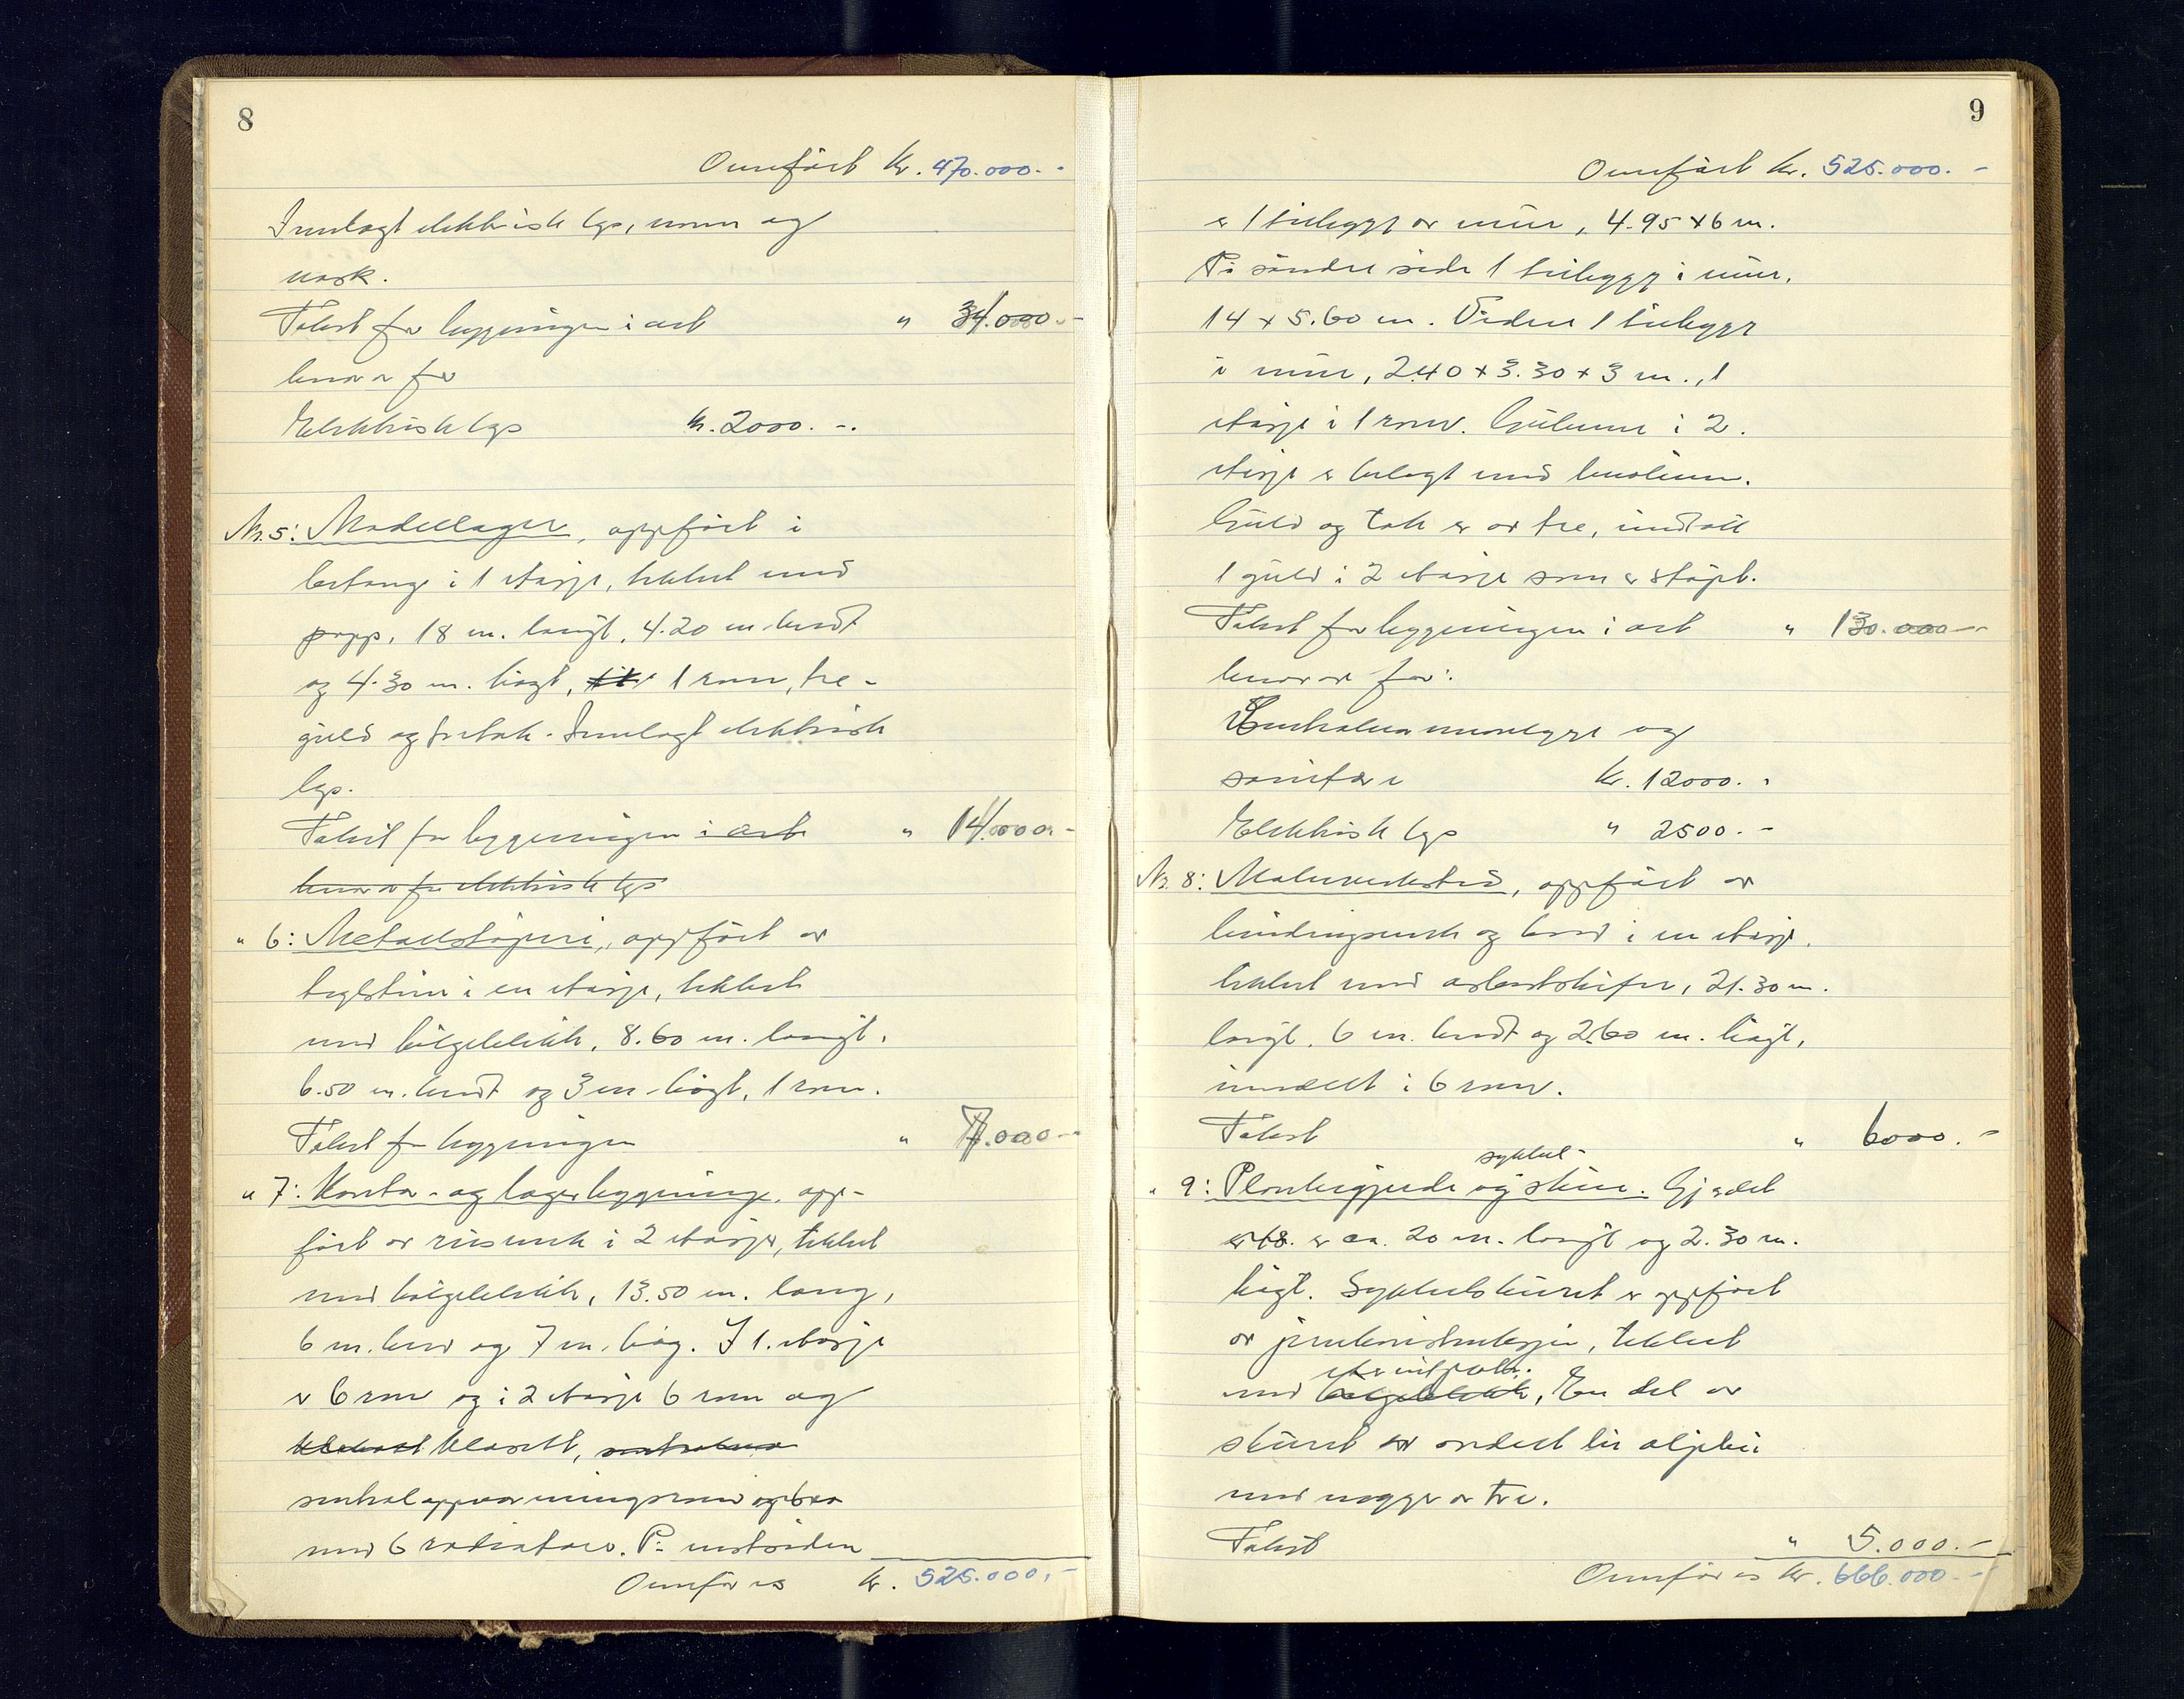 8
Overført Kr. 470.000.-
Innlagt elektrisk lys, vann og
vask.
Takst for bygningen i alt " 34.000.-
herav for
Elektrisk lys kr. 2000.-.
Nr. 5: Modellager, oppført i
betong i 1 etasje, tekket med
papp, 18 m. langt, 4.20 m bredt
og 4.30 m. høgt, 1 rom, tre-
gulv og tretak. Innlagt elektrisk
lys.
Takst for bygningen i alt " 14.000.-
herav for elektrisk lys
" 6: Metallstøperi, oppført av
teglstein i en etasje, tekket
med bølgeblikk, 8.60 m. langt,
6.50 m. bredt og 3 m høgt, 1 rom.
Takst for bygningen " 7.000.-
" 7: Kontor- og lagerbygning, opp-
ført av reisverk i 2 etasjer, tekket
med bølgeblikk, 13.50 m. lang,
6 m. bred og 7 m. høg. I 1. etasje
er 6 rom og i 2 etasje 6 rom og
klosett,
sentraloppvarmingsrom og bad
med 6 radiatorer. På vestsiden
Overføres kr. 525.000,-
9
Overført kr. 525.000.-
er 1 tilbygg av mur, 4.95 x 6 m.
På søndre side 1 tilbygg i mur,
14 x 5.60 m. Videre 1 tilbygg
i mur, 2.40 x 3.30 x 3 m., 1
etasje i 1 rom. Gulvene i 2.
etasje er belagt med linoleum.
Gulv og tak er av tre, unntatt
1 gulv i 2 etasje som er støpt.
Takst for bygningen i alt " 130.000.-
herav for:
Sentralvarmeanlegg og
sanitær kr. 12000.-
Elektrisk lys " 2500.-
Nr. 8: Malerverksted, oppført av
bindingsverk og bord i en etasje,
tekket med asbestskifer, 21.30 m.
langt, 6 m. bredt og 2.60 m. høgt,
inndelt i 6 rom.
Takst " 6000.-
sykkel-
" 9: Plankegjerde og skur. Gjerdet
er ca. 20 m. langt og 2.30 m.
høgt. Sykkelskuret er oppført
av jernkonstruksjon, tekket
eternitplater
med bølgeblikk, En del av
skuret er avdelt til oljebu
med vegger av tre.
Takst " 5.000.-
Overføres kr. 666.000.-